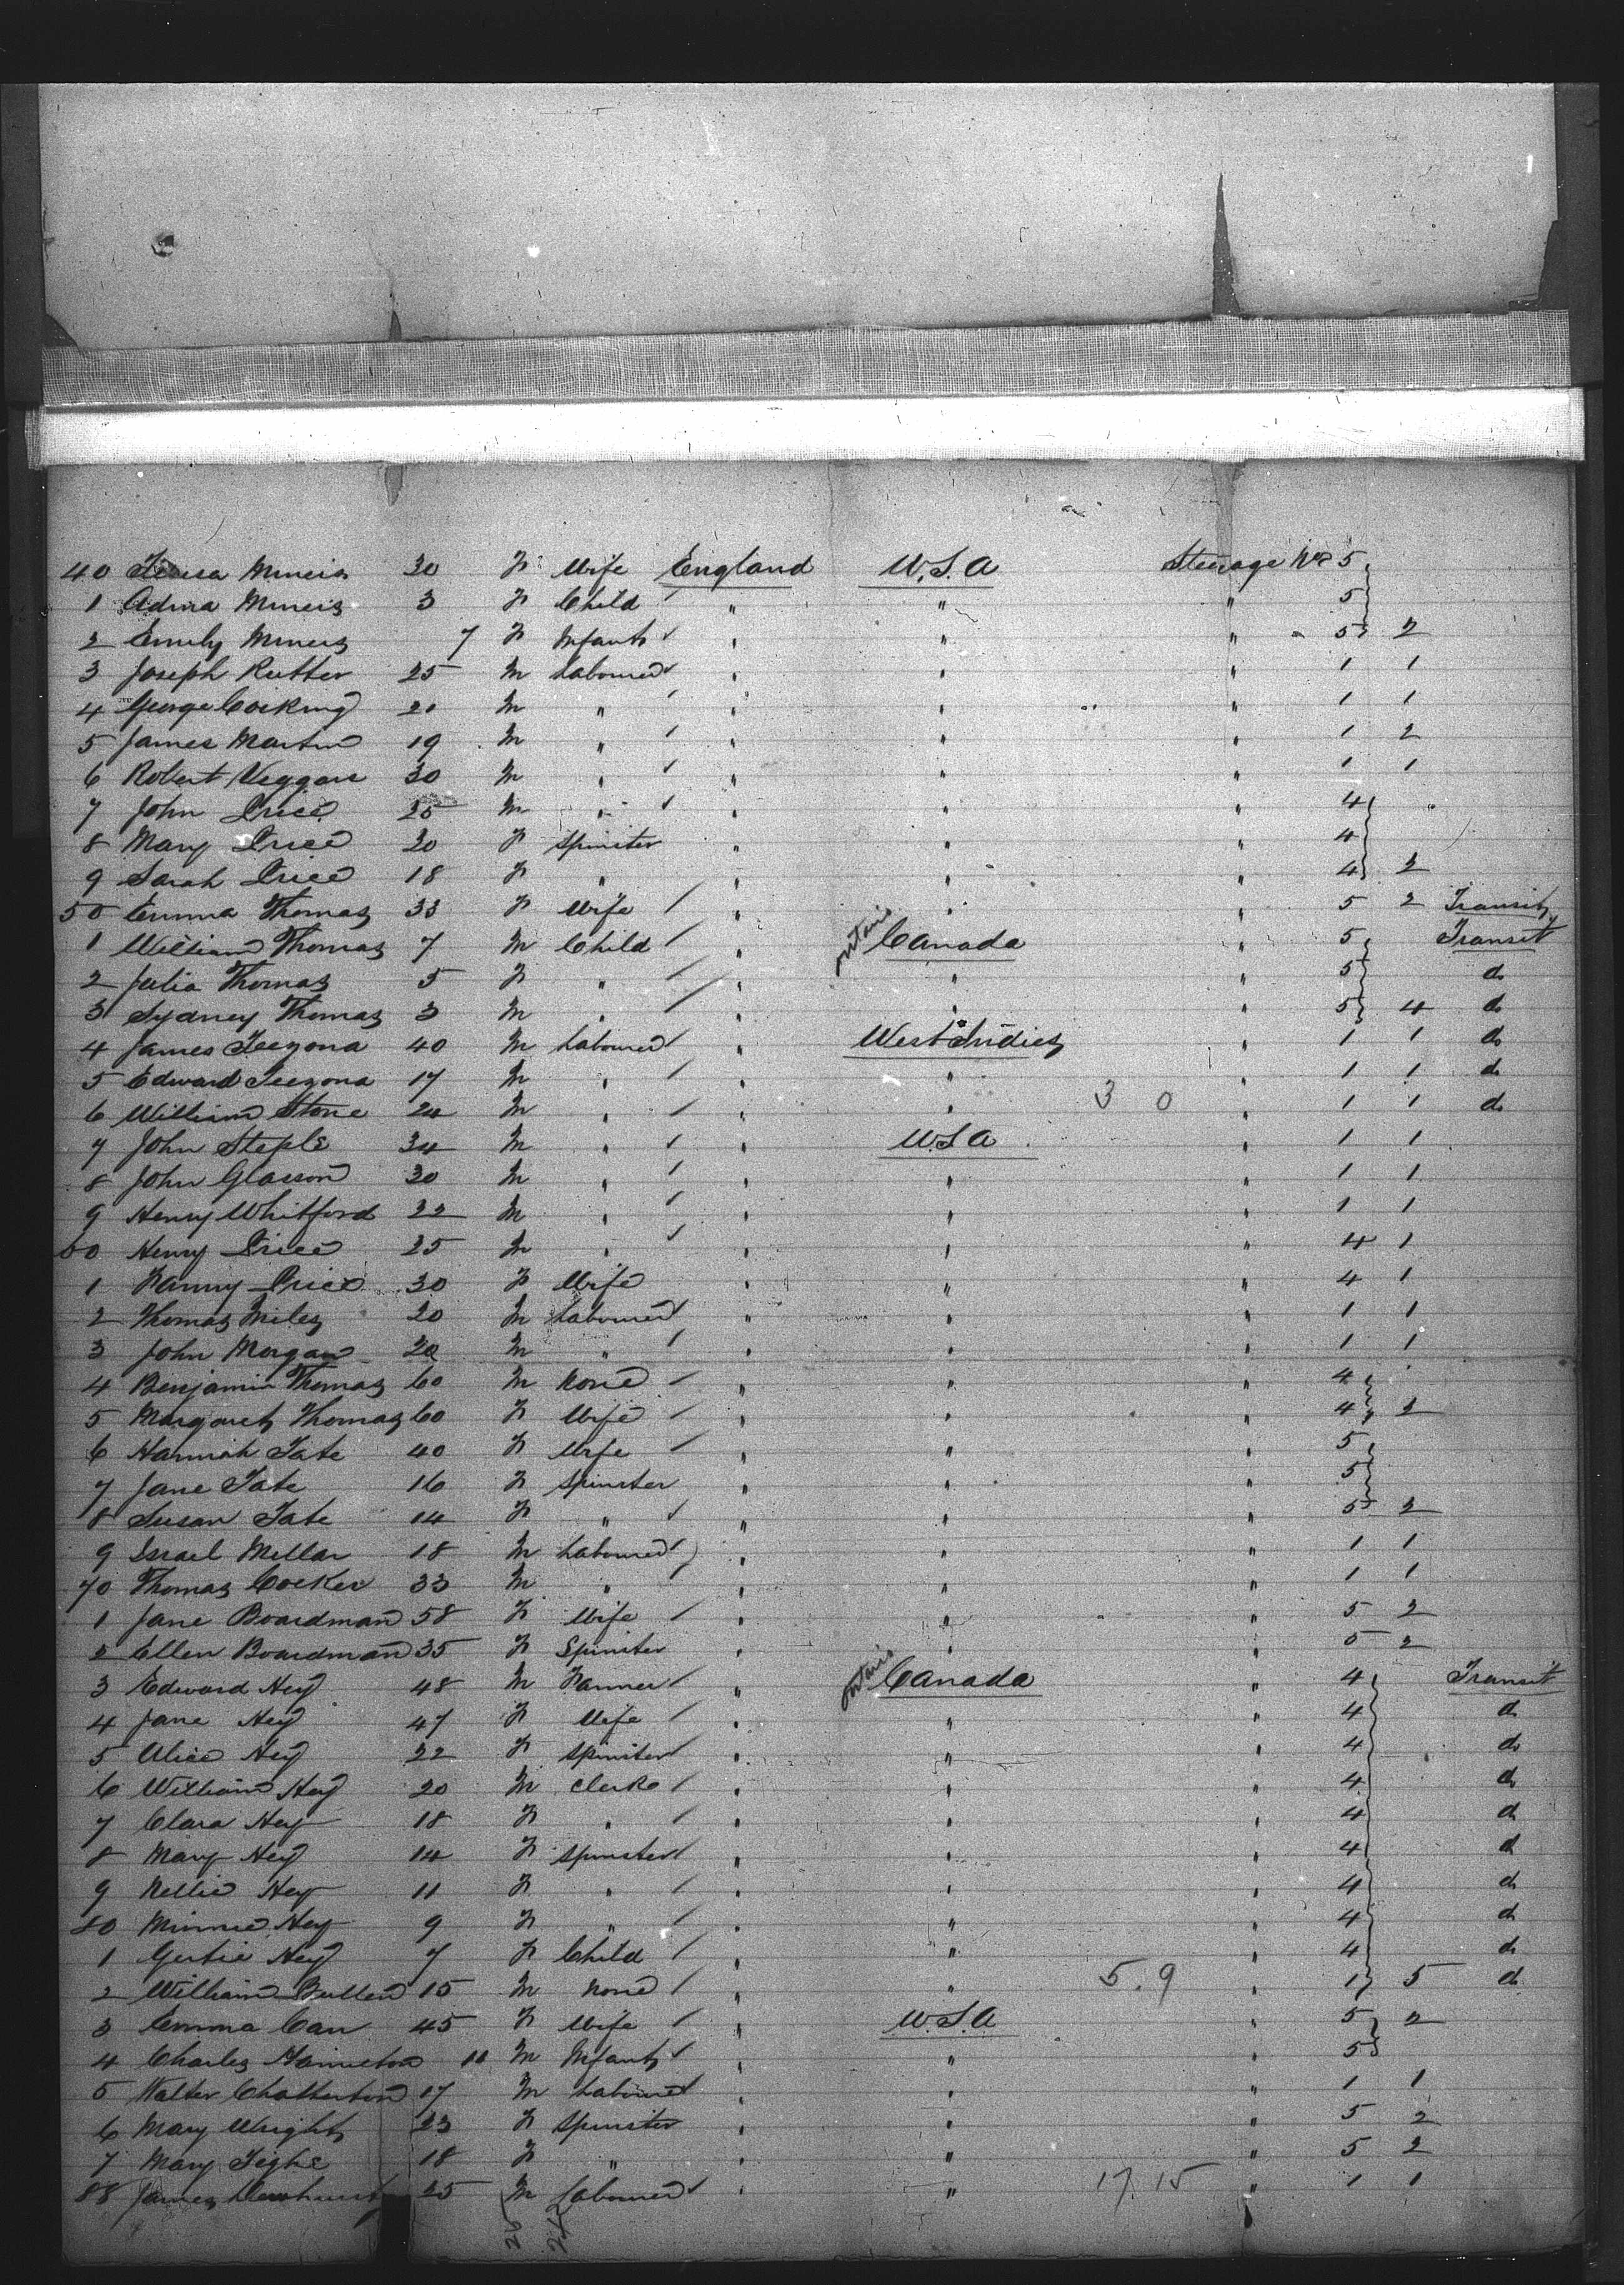 40 Teresa Miners 30 F Wife England U.S.A Steerage No 5
1 Adina Miners 3 F Child " " " 5
2 Emily Miners 7 F Infant " " " 5 2
3 Joseph Rutter 25 M Labourer " " " 1 1
4 George Cocking 20 M " " " " 1 1
5 James Martin 19 M " " " " 1 2
6 Robert 30 M " " " " 1 1
7 John Price 25 M " " " " 4
8 Mary Price 20 F Spinster " " " 4
9 Sarah Price 18 F " " " " 4 2
50 Emma Thomas 33 F Wife " " " 5 2 Transit
1 William Thomas 7 M Child " Ontario Canada " 5 Transit
2 Julia Thomas 5 F " " " " 5 do
3 Sydney Thomas 3 M " " " " 5 4 do
4 James 40 M Labourer " West Indies " 1 1 do
5 Edward 17 M " " " " 1 1 do
6 William Stone 24 M " " " 3 0 " 1 1 do
7 John Steple 34 M " " U.S.A " 1 1
8 John Glasson 30 M " " " " 1 1
9 Henry Whitford 22 M " " " " 1 1
60 Henry Price 25 M " " " " 4 1
1 Fanny Price 30 F Wife " " " 4 1
2 Thomas Miles 20 M Labourer " " " 1 1
3 John Morgan 20 M " " " " 1 1
4 Benjamin Thomas 60 M None " " " 4
5 Margaret Thomas 60 F Wife " " " 4 2
6 Hannah Tate 40 F Wife " " " 5
7 Jane Tate 16 F Spinster " " " 5
8 Susan Tate 14 F " " " " 5 2
9 Israel Mellar 18 M Labourer " " " 1 1
70 Thomas Cocker 33 M " " " " 1 1
1 Jane Boardman 58 F Wife " " " 5 2
2 Ellen Boardman 35 F Spinster " " " 5 2
3 Edward Hey 48 M Farmer " Ontario Canada " 4 Transit
4 Jane Hey 47 F Wife " " " 4 do
5 Alice Hey 22 F Spinster " " " 4 do
6 William Hey 20 M Clerk " " " 4 do
7 Clara Hey 18 F " " " " 4 do
8 Mary Hey 14 F Spinster " " " 4 do
9 Nellie Hey 11 F " " " " 4 do
80 Minnie Hey 9 F " " " " 4 do
1 Gertie Hey 7 F Child " " " 4 do
2 William Bullen 15 M None " " 5.9 " 1 5 do
3 Emma Carr 45 F Wife " U.S.A. " 5 2
4 Charles 11 M Infant " " " 5
5 Walter Chatterton 17 M Labourer " " " 1 1
6 Mary Wright 23 F Spinster " " " 5 2
7 Mary Tighe 18 F " " " " 5 2
88 James Dewhurst 25 M Labourer " " 17.15 " 1 1